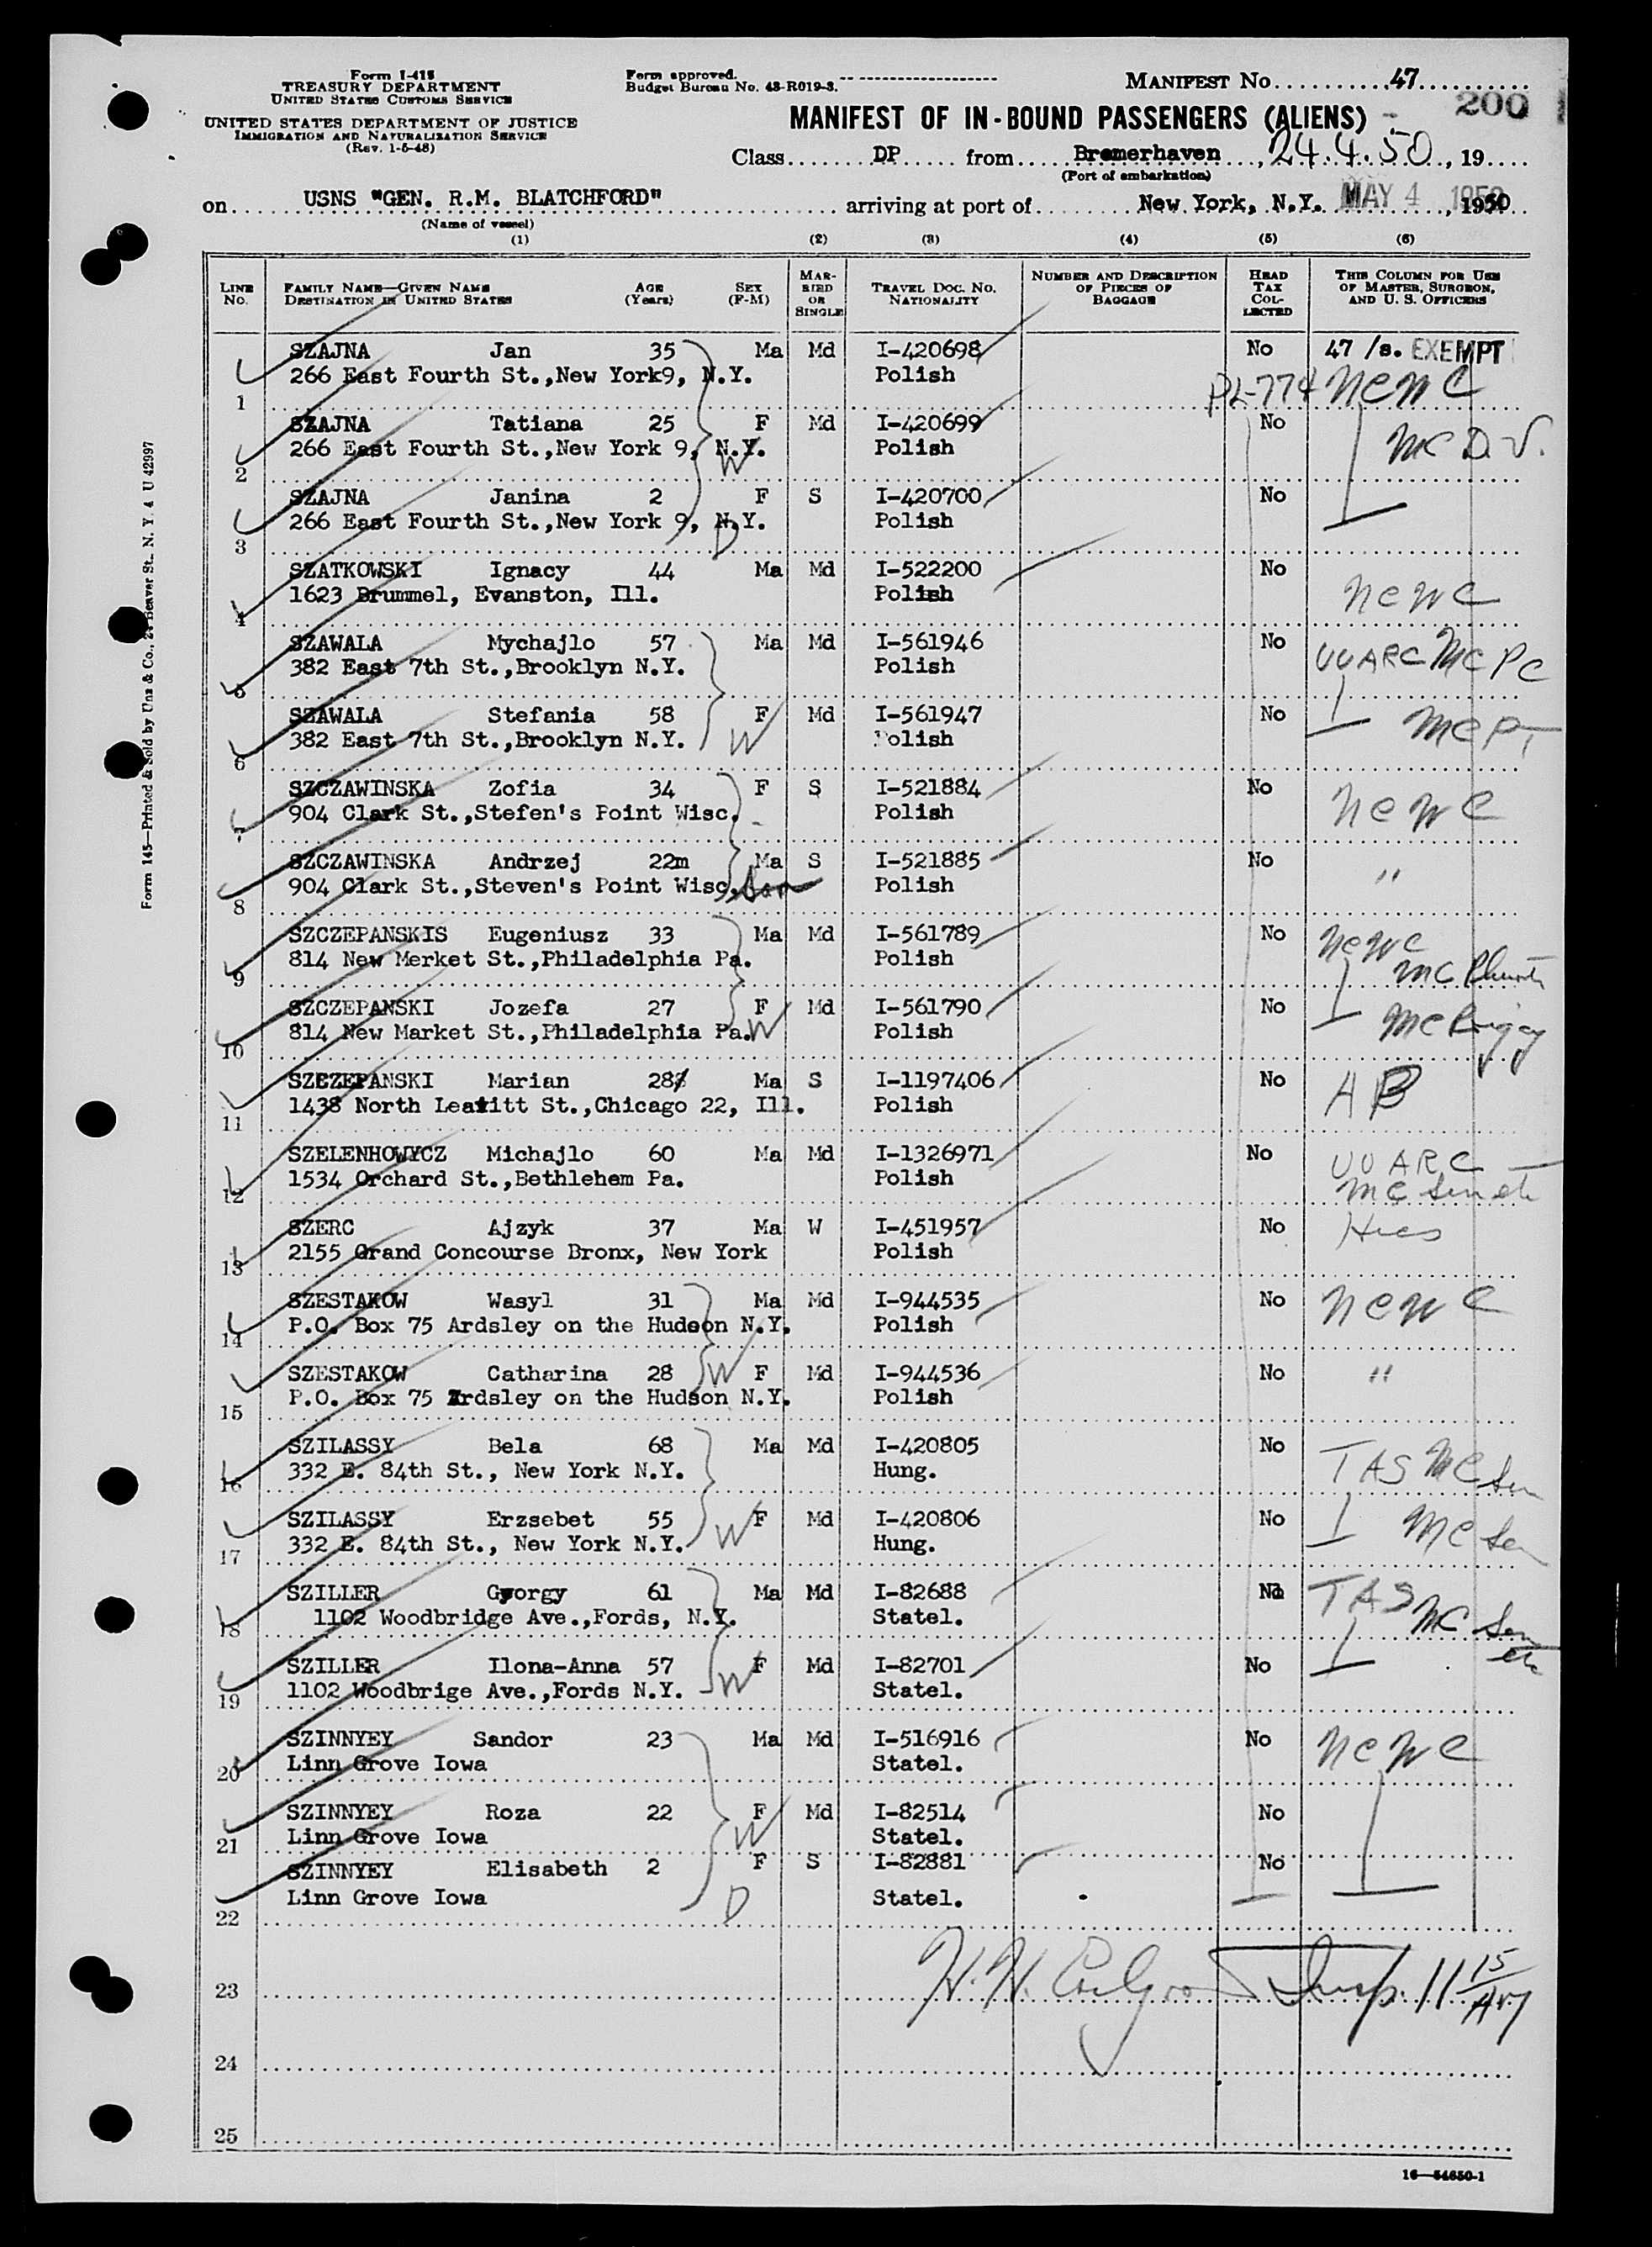 Form I-415
TREASURY DEPARTMENT
UNITED STATES CUSTOMS SERVICE
UNITED STATES DEPARTMENT OF JUSTICE
IMMIGRATION AND NATURALIZATION SERVICE
(Rev. 1-5-48)
Form approved.
Budget Bureau No. 43-R019-3.
MANIFEST NO. 47
200
MANIFEST OF IN-BOUND PASSENGERS (ALIENS)
Class DP from Bremerhaven, 24.4.50, 19
(Port of embarkation)
on USNS "GEN. R.M. BLATCHFORD" arriving at port of New York, N.Y. MAY 4 1950, 1950
(Name of vessel)
(1) (2) (3) (4) (5) (6)
LINE NO. FAMILY NAME—GIVEN NAME DESTINATION IN UNITED STATES AGE (Years) SEX (F-M) MARRIED OR SINGLE TRAVEL DOC. NO. NATIONALITY NUMBER AND DESCRIPTION OF PIECES OF BAGGAGE HEAD TAX COLLECTED THIS COLUMN FOR USE OF MASTER, SURGEON, AND U. S. OFFICERS
SZAJNA Jan 35 Ma Md I-420698 No 47 /s. EXEMPT
266 East Fourth St.,New York9, N.Y. Polish PL-774 NCWC
1
SZAJNA Tatiana 25 F Md I-420699 No
266 East Fourth St.,New York 9, N.Y. Polish MC D.V.
2 W
SZAJNA Janina 2 F S I-420700 No
266 East Fourth St.,New York 9, N.Y. Polish
3 D
SZATKOWSKI Ignacy 44 Ma Md I-522200 No
1623 Brummel, Evanston, Ill. Polish NCWC
4
SZAWALA Mychajlo 57 Ma Md I-561946 No
382 East 7th St.,Brooklyn N.Y. Polish UUARC MC PC
5
SZAWALA Stefania 58 F Md I-561947 No
382 East 7th St.,Brooklyn N.Y. W Polish MC PT
6
SZCZAWINSKA Zofia 34 F S I-521884 No
904 Clark St.,Stefen's Point Wisc. Polish NCWC
7
SZCZAWINSKA Andrzej 22m Ma S I-521885 No
904 Clark St.,Steven's Point Wisc. Son Polish "
8
SZCZEPANSKIS Eugeniusz 33 Ma Md I-561789 No NCWC
814 New Merket St.,Philadelphia Pa. Polish MC
9
SZCZEPANSKI Jozefa 27 F Md I-561790 No
814 New Market St.,Philadelphia Pa. W Polish MC
10
SZCZEPANSKI Marian 28 Ma S I-1197406 No
1438 North Leavitt St.,Chicago 22, Ill. Polish AB
11
SZELENHOWYCZ Michajlo 60 Ma Md I-1326971 No
1534 Orchard St.,Bethlehem Pa. Polish UUARC
12 MC
SZERC Ajzyk 37 Ma W I-451957 No Hias
2155 Grand Concourse Bronx, New York Polish
13
SZESTAKOW Wasyl 31 Ma Md I-944535 No NCWC
P.O. Box 75 Ardsley on the Hudson N.Y. Polish
14
SZESTAKOW Catharina 28 W F Md I-944536 No "
P.O. Box 75 Ardsley on the Hudson N.Y. Polish
15
SZILASSY Bela 68 Ma Md I-420805 No
332 E. 84th St., New York N.Y. Hung. TAS MC Sen
16
SZILASSY Erzsebet 55 W F Md I-420806 No
332 E. 84th St., New York N.Y. Hung. MC Sen
17
SZILLER Gyorgy 61 Ma Md I-82688 No TAS
1102 Woodbridge Ave.,Fords, N.Y. Statel. MC Sen
18
SZILLER Ilona-Anna 57 W F Md I-82701 No
1102 Woodbrige Ave.,Fords N.Y. Statel.
19
SZINNYEY Sandor 23 Ma Md I-516916 No NCWC
Linn Grove Iowa Statel.
20
SZINNYEY Roza 22 F Md I-82514 No
Linn Grove Iowa W Statel.
21
SZINNYEY Elisabeth 2 F S I-82881 No
Linn Grove Iowa D Statel.
22
23 H.H. Insp. 11 15/Am
24
25
16—54650-1
Form 145—Printed & Sold by Unz & Co., 24 Beaver St., N. Y. 4 U 42997